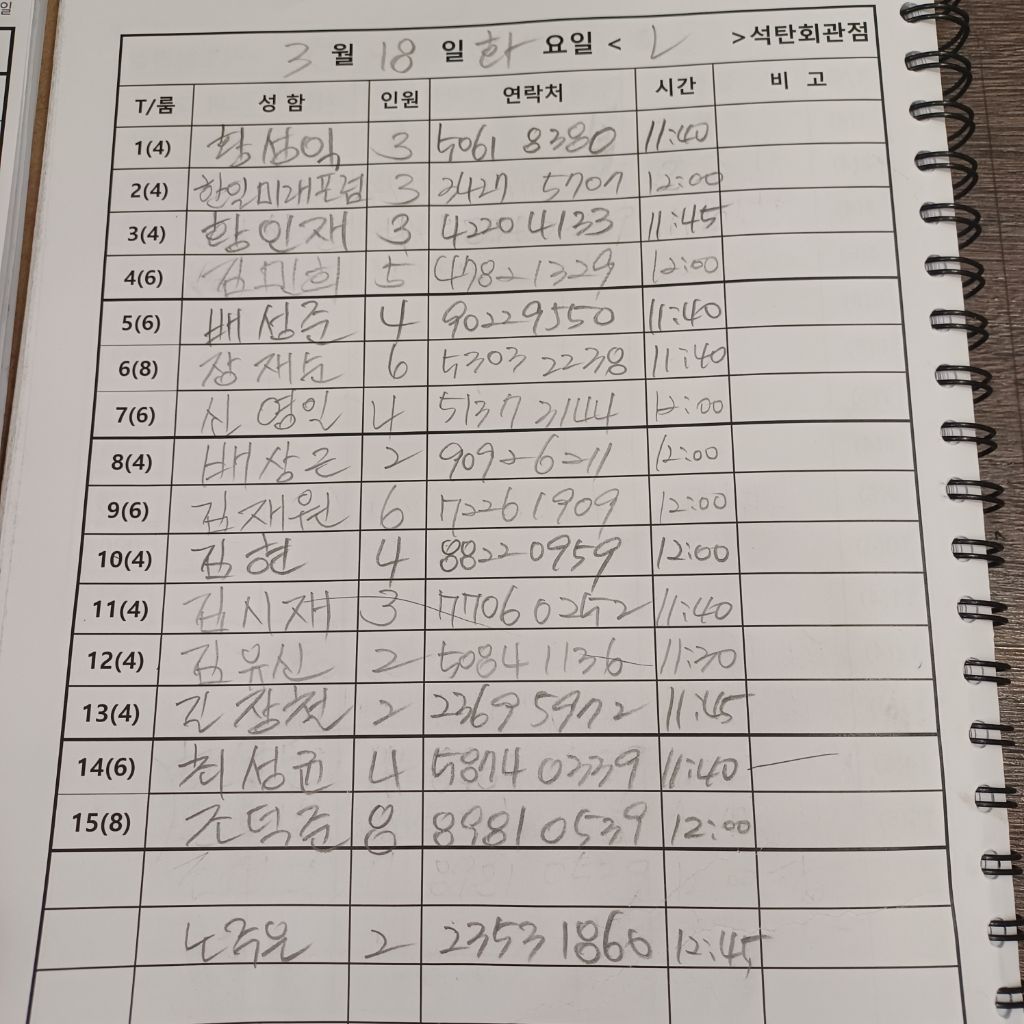 일
3 월 18 일 화 요일 < L >석탄회관점
T/룸 성 함 인원 연락처 시간 비 고
1(4) 황성익 3 5061 8380 11:40
2(4) 한일미래포럼 3 2427 5707 12:00
3(4) 황인재 3 4220 4133 11:45
4(6) 김민희 5 4782-1329 12:00
5(6) 배성준 4 90229550 11:40
6(8) 장재순 6 5303 2238 11:40
7(6) 신영일 4 5137 2144 12:00
8(4) 배상은 2 9092-6211 12:00
9(6) 김재원 6 7226 1909 12:00
10(4) 김현 4 8822 0959 12:00
11(4) 김시재 3 7706 0252 11:40
12(4) 김유신 2 5084 1136 11:30
13(4) 길창현 2 2369 5972 11:45
14(6) 최성균 4 5874 0339 11:40
15(8) 조덕준 8 8981 0539 12:00
노주은 2 2353 1866 12:45